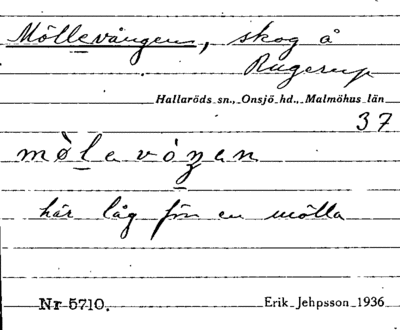 Möllevången, skog å
Rugerup
Hallaröds sn., Onsjö hd., Malmöhus län
37
mø̀levóŋen
här låg förr en mölla
Nr 5710.
Erik Jehpsson 1936